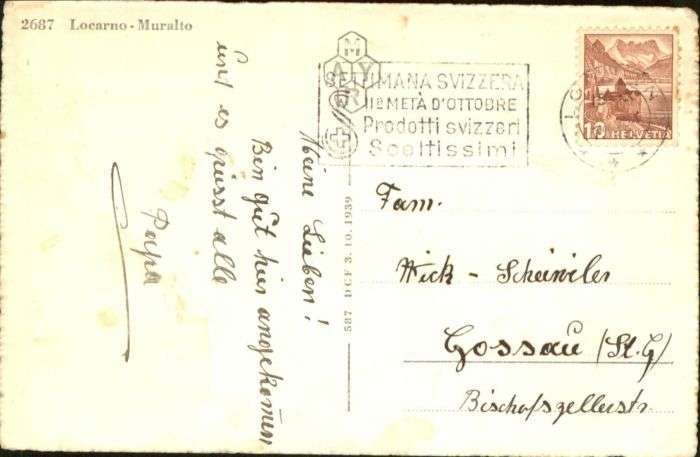 2687 Locarno - Muralto
MAYR
SETTIMANA SVIZZERA
IIª METÀ D'OTTOBRE
Prodotti svizzeri
Sceltissimi
10 HELVETIA
587 DCF 3.10.1939
Meine Lieben!
Bin gut hier angekom̄en
und es grüsst alle
Papa
Fam.
Wick - Scheiwiler
Gossau (St. G)
Bischofszellerstr.